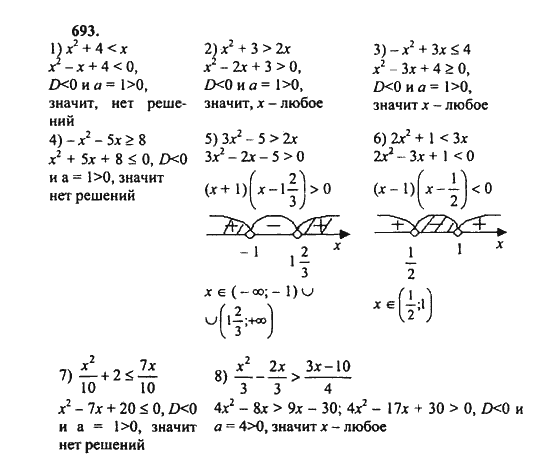 693.
1) x² + 4 < x
x² – x + 4 < 0,
D<0 и a = 1>0,
значит, нет реше-
ний
2) x² + 3 > 2x
x² – 2x + 3 > 0,
D<0 и a = 1>0,
значит, x – любое
3) – x² + 3x ≤ 4
x² – 3x + 4 ≥ 0,
D<0 и a = 1>0,
значит x – любое
4) – x² – 5x ≥ 8
x² + 5x + 8 ≤ 0, D<0
и a = 1>0, значит
нет решений
5) 3x² – 5 > 2x
3x² – 2x – 5 > 0
(x + 1)(x – 1 2/3) > 0
+ – +
– 1 1 2/3 x
x ∈ ( – ∞; – 1) ∪
∪(1 2/3; +∞)
6) 2x² + 1 < 3x
2x² – 3x + 1 < 0
(x – 1)(x – 1/2) < 0
+ – +
1/2 1 x
x ∈ (1/2; 1)
7) x²/10 + 2 ≤ 7x/10
x² – 7x + 20 ≤ 0, D<0
и a = 1>0, значит
нет решений
8) x²/3 – 2x/3 > (3x – 10)/4
4x² – 8x > 9x – 30; 4x² – 17x + 30 > 0, D<0 и
a = 4>0, значит x – любое